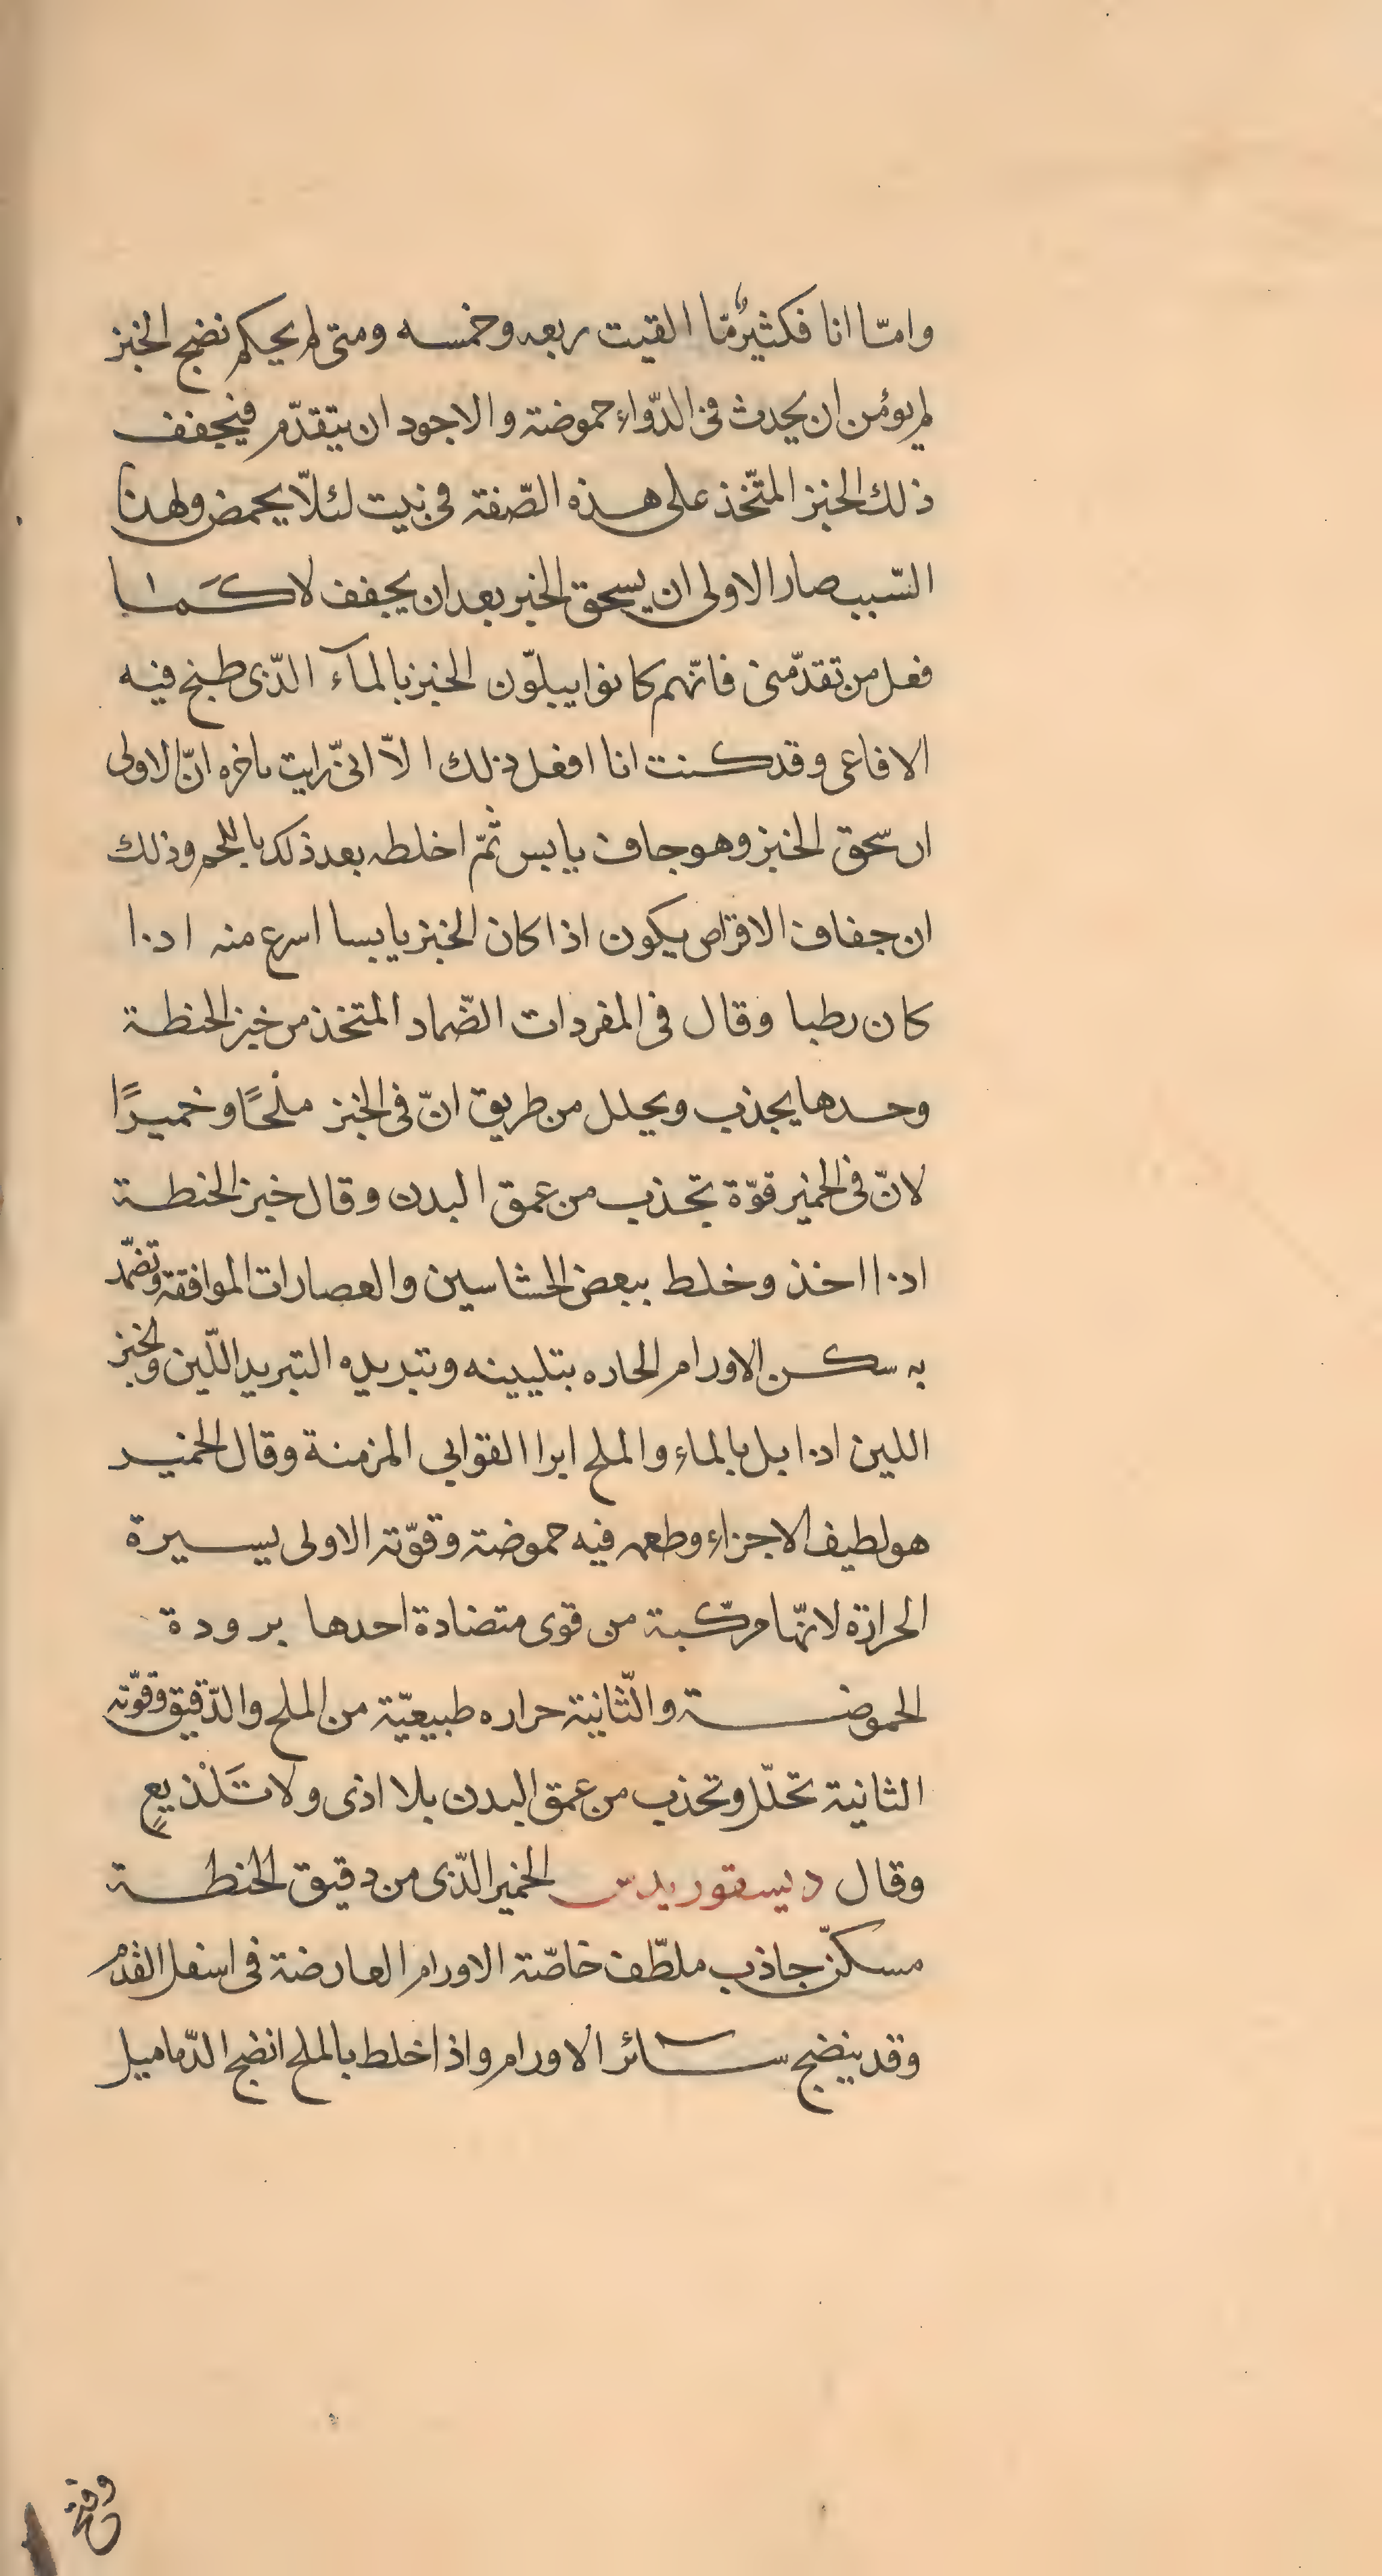 وامّا انا فكثيرٌ مّا القيت ربعه وخمسه ومتى لم يحكم نضج الخبز
لم يومن ان يحدث فى الدّواء حموضة والاجود ان يتقدّم فيجفف
ذلك الخبز المتّخذ على هذه الصّفة فى بيت لئلّا يحمض ولهذا
السّبب صار الاولى ان يسحق الخبز بعد ان يجفف لا كَما
فعل من تقدّمنى فانّهم كانوا يبلّون الخبز بالمآء الذّى طبخ فيه
الافاعى وقد كنت انا افعل ذلك الّا انّى رايت باخره انّ الاولى
ان سحق الخبز وهو جاف يابس ثمّ اخلطه بعد ذلك باللحم وذلك
ان جفاف الاقراص يكون اذا كان الخبز يابسا اسرع منه اذا
كان رطبا وقال فى المفردات الضّماد المتخذ من خبز الحنطة
وحدها يجذب ويحلل من طريق انّ فى الخبز ملْحًا وخميرًا
لانّ فى الخمير قوّة تجذب من عمق البدن وقال خبز الحنطة
اذا اخذ وخلط ببعض الحشاسين والعصارات الموافقة وتضمّد
به سكن الاورام الحاره بتليينه وتبريده التبريد اللّين والخبز
اللين اذا بل بالماء والملح ابرا القوابى المزمنة وقال الخمير
هو لطيف الاجزاء وطعمه فيه حموضة وقوّته الاولى يسيرة
الحرارة لانّها مركّبة من قوى متضادة احدها برودة
الحموضة والثّانية حراره طبيعيّة من الملح والدّقيق وقوّته
الثانية تحلّل وتجذب من عمق البدن بلا اذى ولا تَلْذيعٍ
وقال ديسقوريدس الخمير الذّى من دقيق الحنطة
مسكّن جاذب ملطّف خاصّة الاورام العارضة فى اسفل القدم
وقد ينضج سائر الاورام واذا خلط بالملح انضج الدّماميل
وفتح